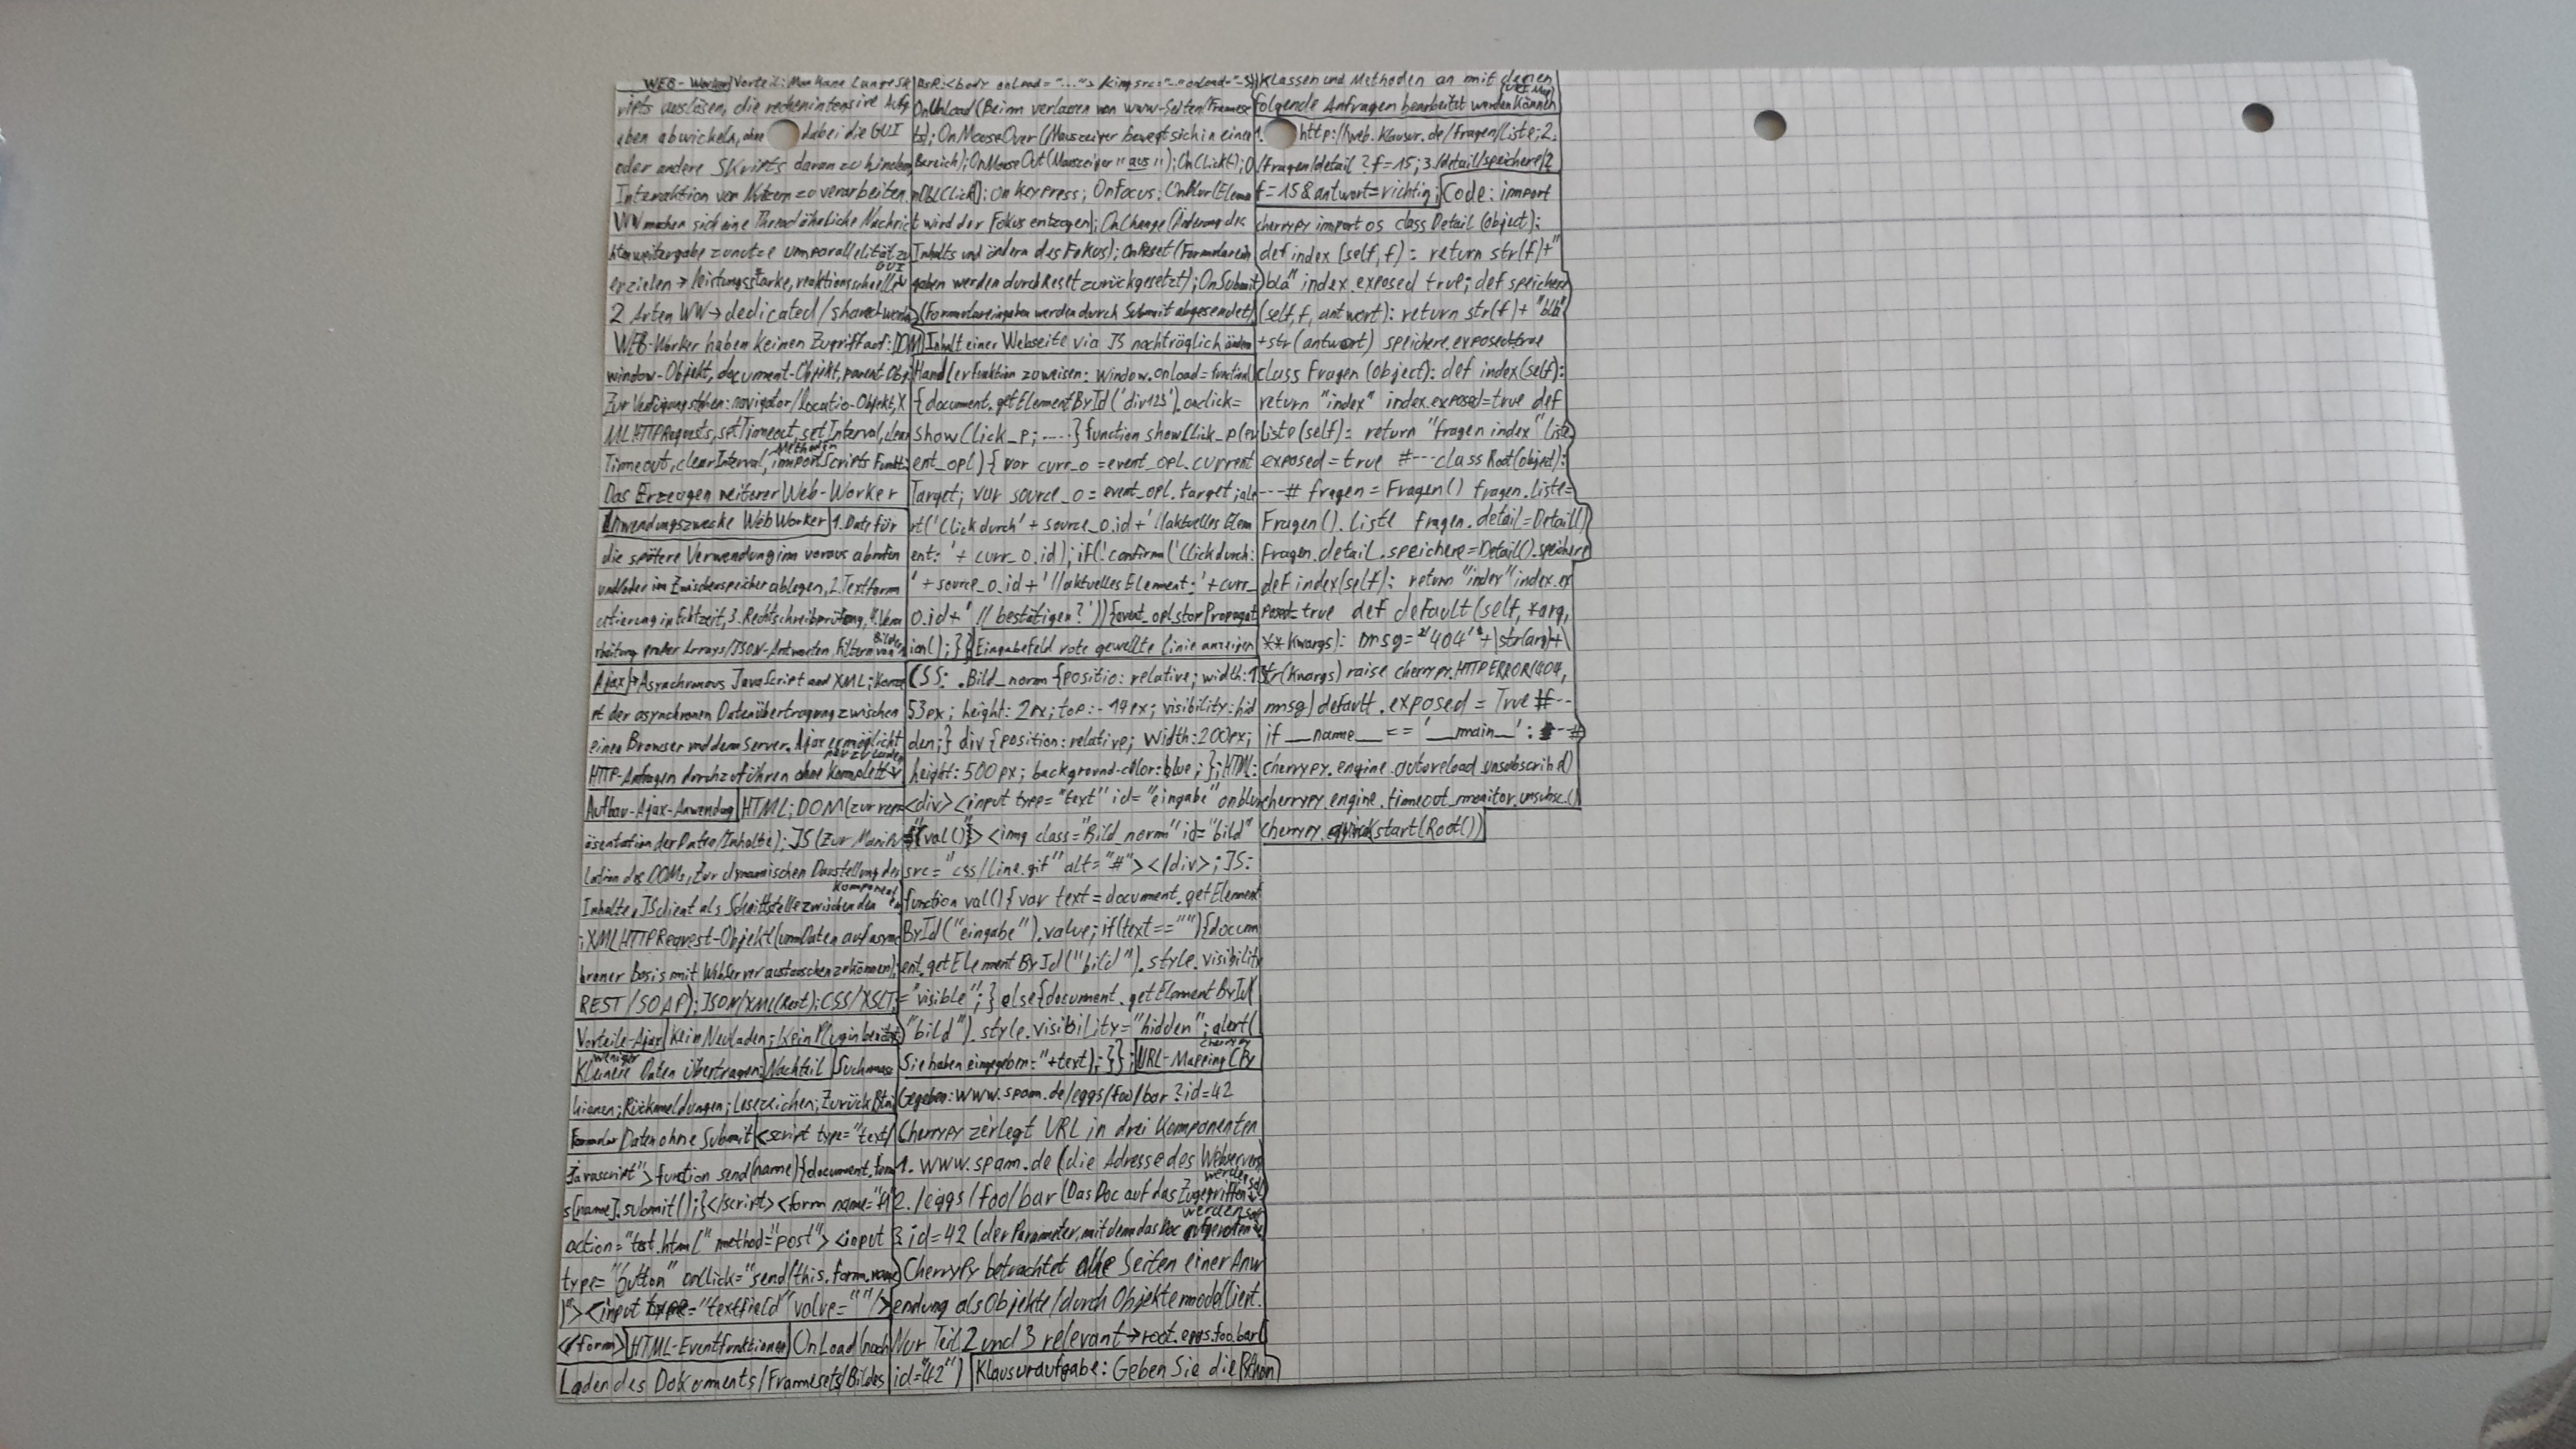 WEB-Worker Vorteil: Man kann lange Sk
ripts auslösen, die rechenintensive Aufg
aben abwickeln, ohne dabei die GUI
oder andere Skripts daran zu hindern
Interaktion von Nutzern zu verarbeiten.
WW machen sich eine Thread ähnliche Nachric
htenweitergabe zunutze um parallelität zu
erzielen → leistungsstarke, reaktionsschnelle GUI
2 Arten WW → dedicated / shared worker
WEB-Worker haben keinen Zugriff auf: DOM
window-Objekt, document-Objekt, parent Obj
Zur Verfügung stehen: navigator/locatio-Objekt, X
MLHTTPRequests, setTimeout, setInterval, clear
Timeout, clearInterval, importScripts Methoden
Das Erzeugen weiterer Web-Worker
Anwendungszwecke WebWorker 1. Date für
die spätere Verwendung im voraus abrufen
und/oder im Zwischenspeicher ablegen, 2. Textform
atierung in Echtzeit, 3. Rechtschreibprüfung, 4. Vera
rbeitung großer Arrays/JSON-Antworten, Filtern von Bildern
Ajax → Asynchronous JavaScript and XML; Konze
pt der asynchronen Datenübertragung zwischen
einen Browser und dem Server. Ajax ermöglicht
HTTP-Anfragen durchzuführen ohne komplett neu zu laden
Aufbau-Ajax-Anwendung HTML; DOM (zur repr
äsentation der Daten/Inhalte); JS (Zur Manipu
lation des DOMs, Zur dynamischen Darstellung der
Inhalte, JS client als Schnittstelle zwischen den Komponenten
; XMLHTTPRequest-Objekt (um Daten auf async
hroner Basis mit WebServer austauschen zu können);
REST/SOAP); JSON/XML(Rest); CSS/XSLT;
Vorteile-Ajax Kein Neuladen; kein Plugin benötigt
Kleinere weniger Daten übertragen; Nachteil Suchmasc
hienen; Rückmeldungen; Lesezeichen; Zurück Btn
Formular Daten ohne Submit <script type="text/
Javascript"> function send(name){document.form
s[name].submit();}</script><form name="
action="test.html" method="post"> <input
type="button" onClick="send(this.form.name
)"> <input type="textfield" value=""/>
</form> HTML-Eventfunktionen OnLoad (nach
Laden des Dokuments/Framesets/Bildes
Bsp: <body onload="..."> /<img src="-" onload="-">)
OnUnload (Beim verlassen von www-Seiten/Frames
ts); OnMouseOver (Mauszeiger bewegt sich in einen
Bereich); OnMouseOut (Mauszeiger "aus"); OnClick(); O
nDblClick(); OnKeypress; OnFocus; OnBlur (Eleme
t wird der Fokus entzogen); OnChange (Änderung des
Inhalts und ändern des Fokus); OnReset (Formularein
gaben werden durch Reset zurückgesetzt); OnSubmit
(Formulareingaben werden durch Submit abgesendet)
Inhalt einer Webseite via JS nachträglich ändern
Handlerfunktion zuweisen: Window.onload = function()
{document.getElementById('div123').onclick =
showClick_p; ....} function showClick_p(ev
ent_opl) { var curr_o = event_opl.current
Target; var source_o = event_opl.target; ale
rt('Click durch' + source_o.id + ' //aktuelles Elem
ent: ' + curr_o.id); if(!confirm('Click durch:
' + source_o.id + ' //aktuelles Element: ' + curr_
o.id + ' // bestätigen?')){event_opl.stopPropagat
ion();}} Eingabefeld rote gewellte linie anzeigen
CSS: .Bild_norm {positio: relative; width: 1
53px; height: 2px; top: -19px; visibility: hid
den;} div {position: relative; width: 200px;
height: 500px; background-color: blue;}; HTML:
<div> <input type="text" id="eingabe" onblur=
"{val()}"> <img class="Bild_norm" id="bild"
src="css/line.gif" alt="#"> </div>; JS:
function val(){ var text = document.getElement
ById("eingabe").value; if(text==""){docum
ent.getElementById("bild").style.visibility
="visible"; } else{document.getElementById(
"bild").style.visibility="hidden"; alert("
Sie haben eingegeben: "+text);}}; URL-Mapping Cherrypy
Gegeben: www.spam.de/eggs/foo/bar?id=42
Cherrypy zerlegt URL in drei Komponenten
1. www.spam.de (die Adresse des Webservers)
2. /eggs/foo/bar (Das Doc auf das Zugegriffen werden soll)
3. id=42 (der Parameter, mit dem das Doc aufgerufen werden soll
CherryPy betrachtet alle Seiten einer Anw
endung als Objekte/durch Objekte modelliert.
Nur Teil 2 und 3 relevant → root.eggs.foo.bar(
id="42") Klausuraufgabe: Geben Sie die Python
Klassen und Methoden an mit denen
folgende Anfragen bearbeitet werden können (URI Map)
1. http://web.klausur.de/fragen/liste; 2.
/fragen/detail?f=15; 3./detail/speichere/?
f=15&antwort=richtig; Code: import
cherrypy import os class Detail (object):
def index (self, f): return str(f)+"
bla" index.exposed true; def speichere
(self, f, antwort): return str(f) + "bla"
+str(antwort) speichere.exposed=true
class Fragen (object): def index(self):
return "index" index.exposed=true def
liste(self): return "fragen index" liste
exposed = true #--- class Root(object):
---# fragen = Fragen() fragen.liste=
Fragen().liste fragen.detail=Detail()
fragen.detail.speichere=Detail().speichere
def index(self): return "index" index.ex
posed=true def default(self, *arg,
**Kwargs): msg="404"+\str(arg)+\
str(Kwargs) raise cherrypy.HTTPERROR(404,
msg) default.exposed = True #---
if __name__ == '__main__': ---#
cherrypy.engine.autoreload.unsubscribe()
cherrypy.engine.timeout_monitor.unsubsc.()
cherrypy.quickstart(Root())